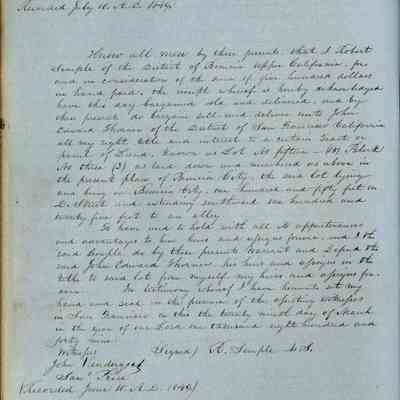 Recorded July 10. A.D. 1849
Know all men by these presents that I Robert
Semple of the District of Benicia Upper California, for
and in consideration of the sum of five hundred dollars
in hand paid, the receipt whereof is hereby acknowledged
have this day bargained sold and delivered, and by
these presents do bargain sell and deliver unto John
Edward of the District of San Francisco California
all my right title and interest to a certain tract or
parcel of Land, known as Lot No fifteen (15) Block
No three (3) as laid down and numbered as above in
the present plan of Benicia City, the said lot lying
and being in Benicia City one hundred and fifty feet on
D. Street and extending southward one hundred and
twenty five feet to an alley
To have and to hold with all its appurtenances
and advantages to him heirs and assigns forever, and I the
said Semple, do by these presents Warrant and Defend the
said John Edward his heirs and assigns in the
title to said lot from myself my heirs and assigns for-
ever. In testimony whereof I have hereunto set my
hand and seal in the presence of the attesting witnesses
in San Francisco on this the twenty ninth day of March
in the year of our Lord one thousand eight hundred and
forty nine.
Witness Signed R. Semple L.S.
John
Saml
(Recorded June 10. A.D. 1849)